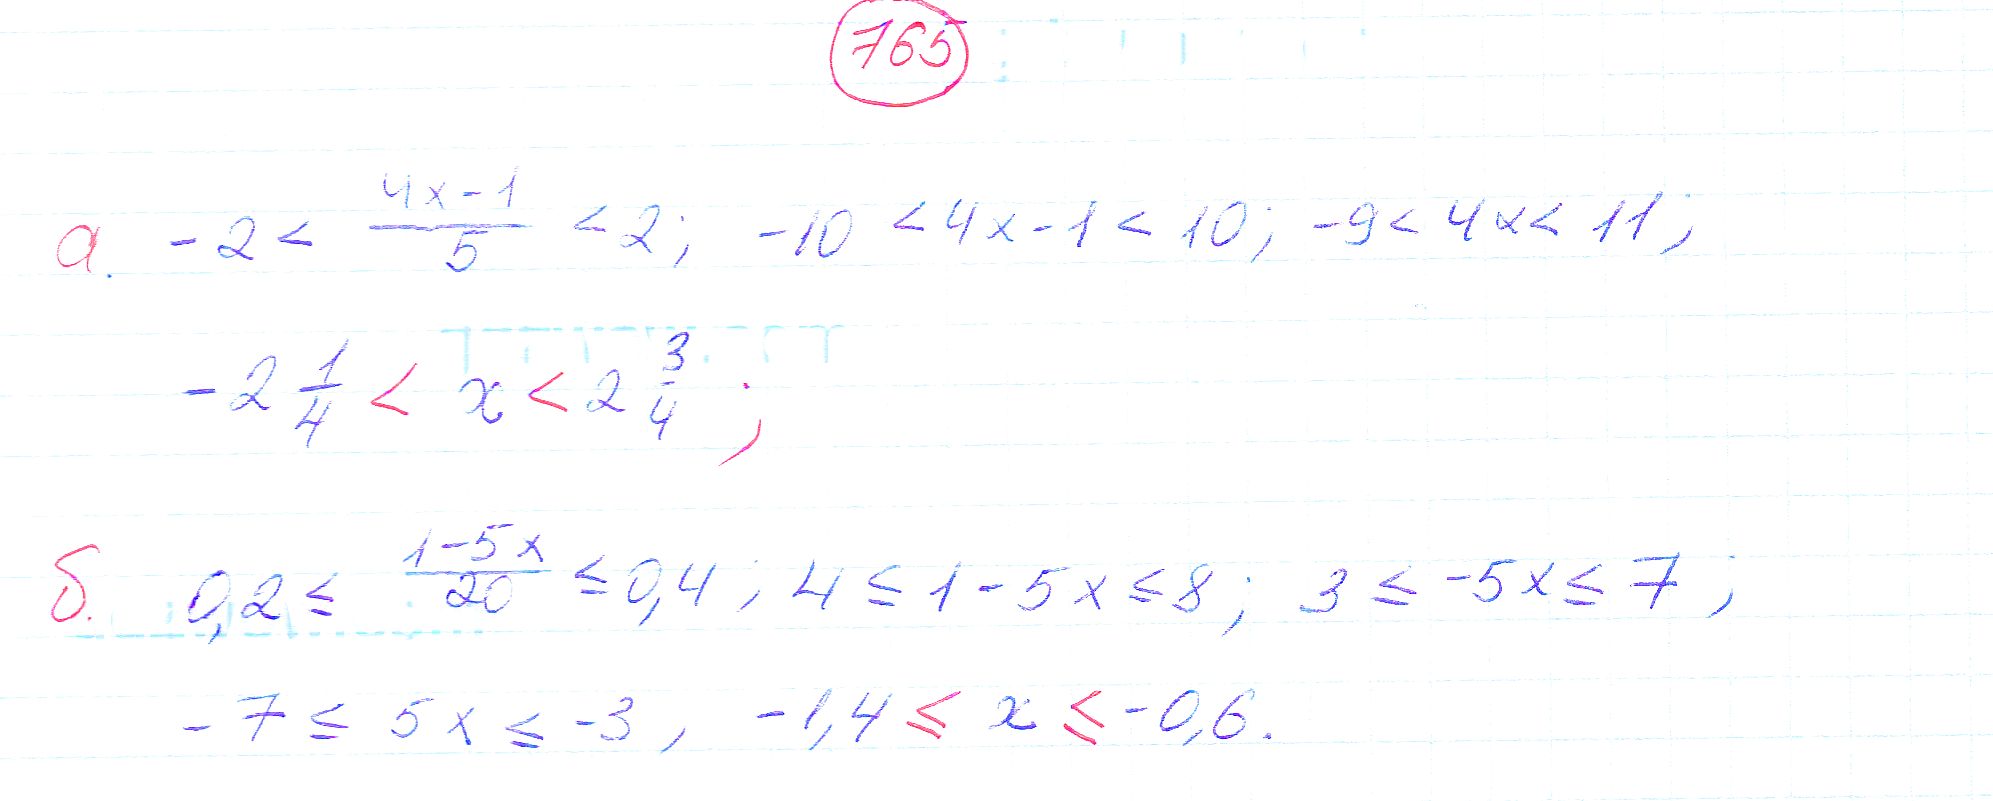 765
а. -2 < (4x-1)/5 < 2; -10 < 4x-1 < 10; -9 < 4x < 11;
-2 1/4 < x < 2 3/4;
б. 0,2 ≤ (1-5x)/20 ≤ 0,4; 4 ≤ 1-5x ≤ 8; 3 ≤ -5x ≤ 7;
-7 ≤ 5x ≤ -3, -1,4 ≤ x ≤ -0,6.